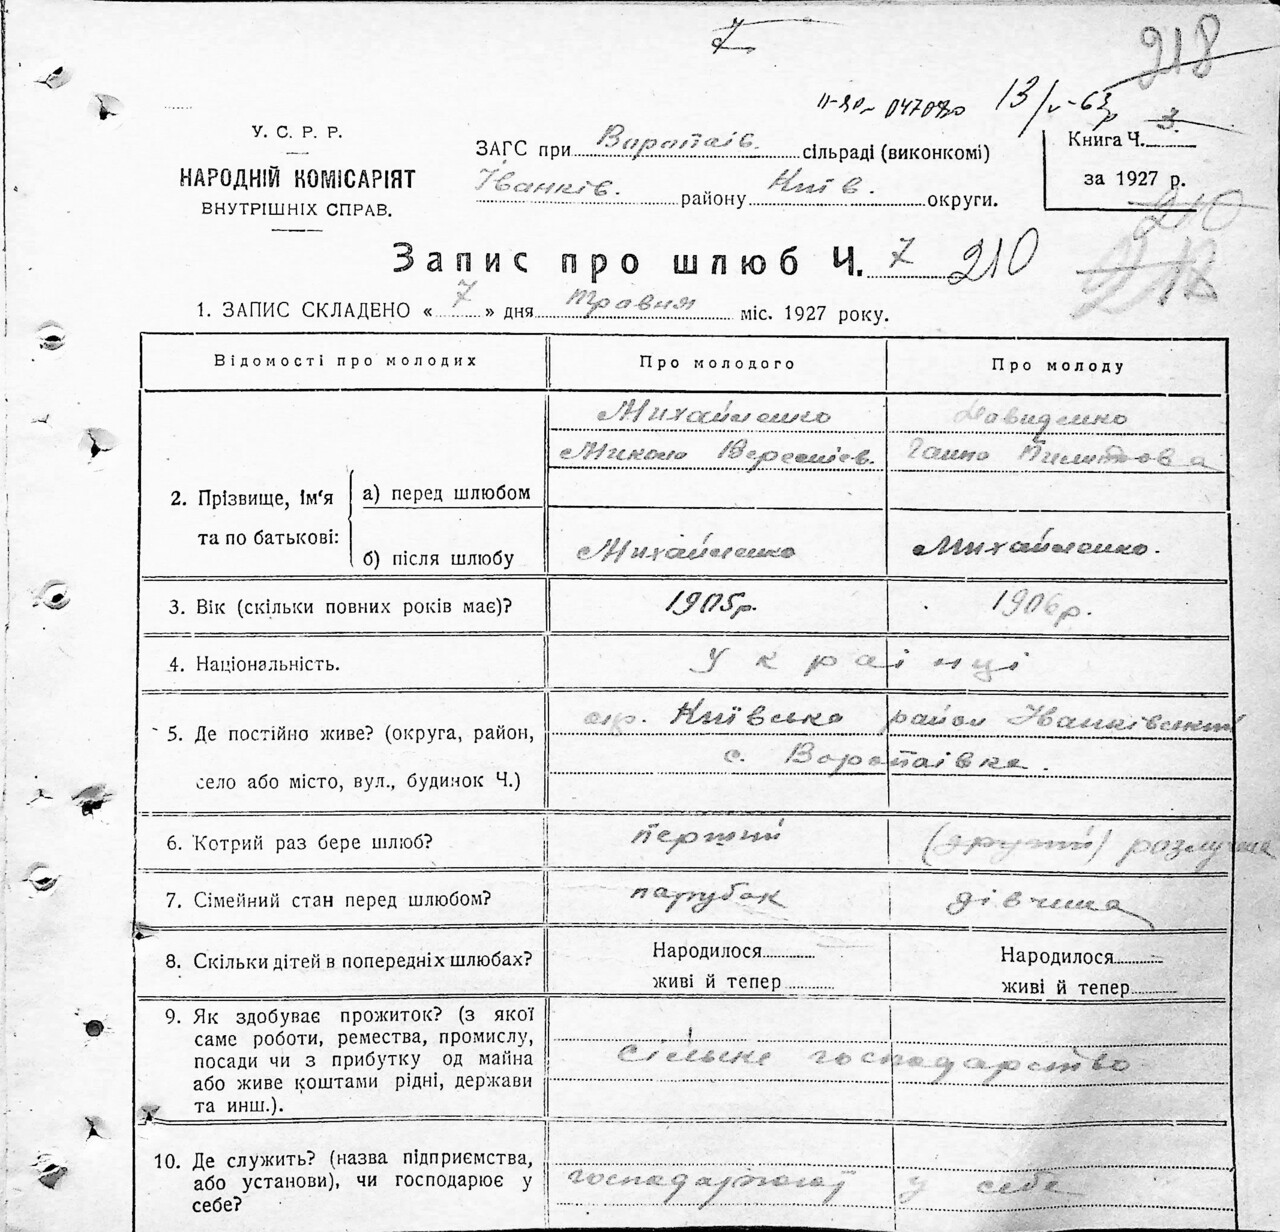 7
218
13/V-63р
У. С. Р. Р.
НАРОДНІЙ КОМІСАРІЯТ
ВНУТРІШНІХ СПРАВ.
ЗАГС при Воропаїв. сільраді (виконкомі)
Іванків. району Київ. округи.
Книга Ч. 3.
за 1927 р.
210
218
Запис про шлюб Ч. 7 210
1. ЗАПИС СКЛАДЕНО « 7 » дня травня міс. 1927 року.
Відомості про молодих Про молодого Про молоду
Михайленко Давиденко
Микола Ганна Пилипова
2. Прізвище, ім'я та по батькові: а) перед шлюбом
б) після шлюбу Михайленко Михайленко.
3. Вік (скільки повних років має)? 1905р. 1906р.
4. Національність. Українці
5. Де постійно живе? (округа, район, село або місто, вул., будинок Ч.) окр. Київська район Іванківський
с. Воропаївка.
6. Котрий раз бере шлюб? перший (другий)
7. Сімейний стан перед шлюбом? парубок дівчина
8. Скільки дітей в попередніх шлюбах? Народилося Народилося
живі й тепер живі й тепер
9. Як здобуває прожиток? (з якої
саме роботи, ремества, промислу,
посади чи з прибутку од майна
або живе коштами рідні, держави
та инш.).
сільське господарство
10. Де служить? (назва підприємства,
або установи), чи господарює у
себе?
у себе